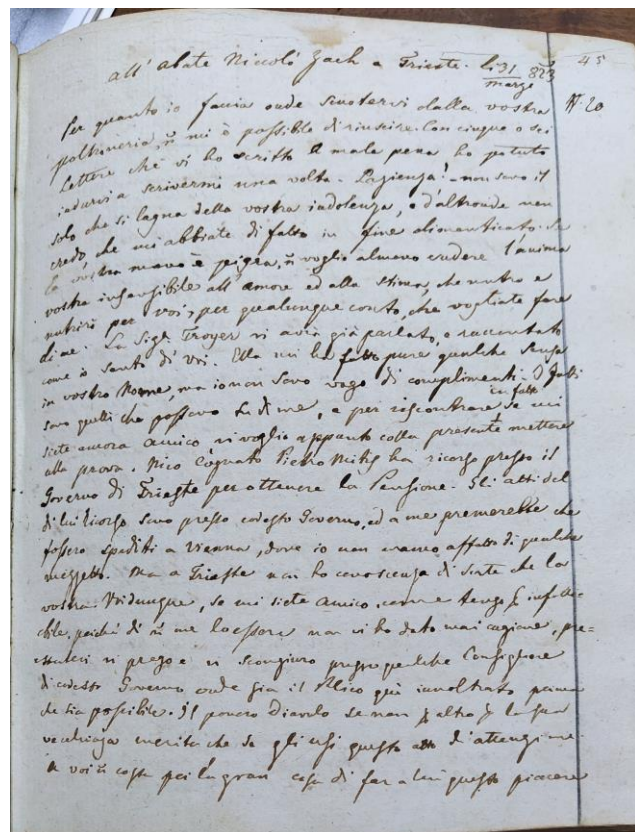 45
all' abate Niccolò Zach a Trieste. li 31 marzo 823
N. 20
Per quanto io faccia onde scuotervi dalla vostra
poltroneria, n mi è possibile di riuscire. Con cinque o sei
Lettere che vi ho scritto a mala pena ho potuto
indurvi a scrivermi una volta. Pazienza! non sono il
solo che si lagna della vostra indolenza, e d'altronde non
credo, che mi abbiate di fatto in fine dimenticato. Se
la vostra mano è pigra, n voglio almeno credere l'anima
vostra insensibile all'amore ed alla stima, che nutro e
nutrirò per voi, per qualunque conto, che vogliate fare
di me. La Sigra Troyer vi avrà già parlato, e raccontato
come io sento di Voi. Ella mi ha fatto pure qualche scusa
in vostro Nome, ma io non sono vago di complimenti. I fatti
sono quelli che possono su di me, e per riscontrare se mi
in fatti
siete ancora amico vi voglio appunto colla presente mettere
alla prova. Mio Cognato Pietro Mitis ha ricorso presso il
Governo di Trieste per ottenere la Pensione. Gli atti del
di lui ricorso sono presso codesto Governo, ed a me premerebbe che
fossero spediti a Vienna, dove io non manco affatto di qualche
mezzetto. Ma a Trieste non ho conoscenza di sorte che la
vostra. Vi dunque, se mi siete amico, come tengo infalli-
bile, poichè di n me lo essere non vi ho dato mai cagione, pre-
vi prego e vi scongiuro presso qualche Consigliere
di codesto Governo onde sia il più inoltrato prima
che sia possibile. Il povero Diavolo se non altro la sua
vecchiaja merita che se gli usi questo atto d'attenzione.
A voi n costa poi la gran cosa di far a lui questo piacere